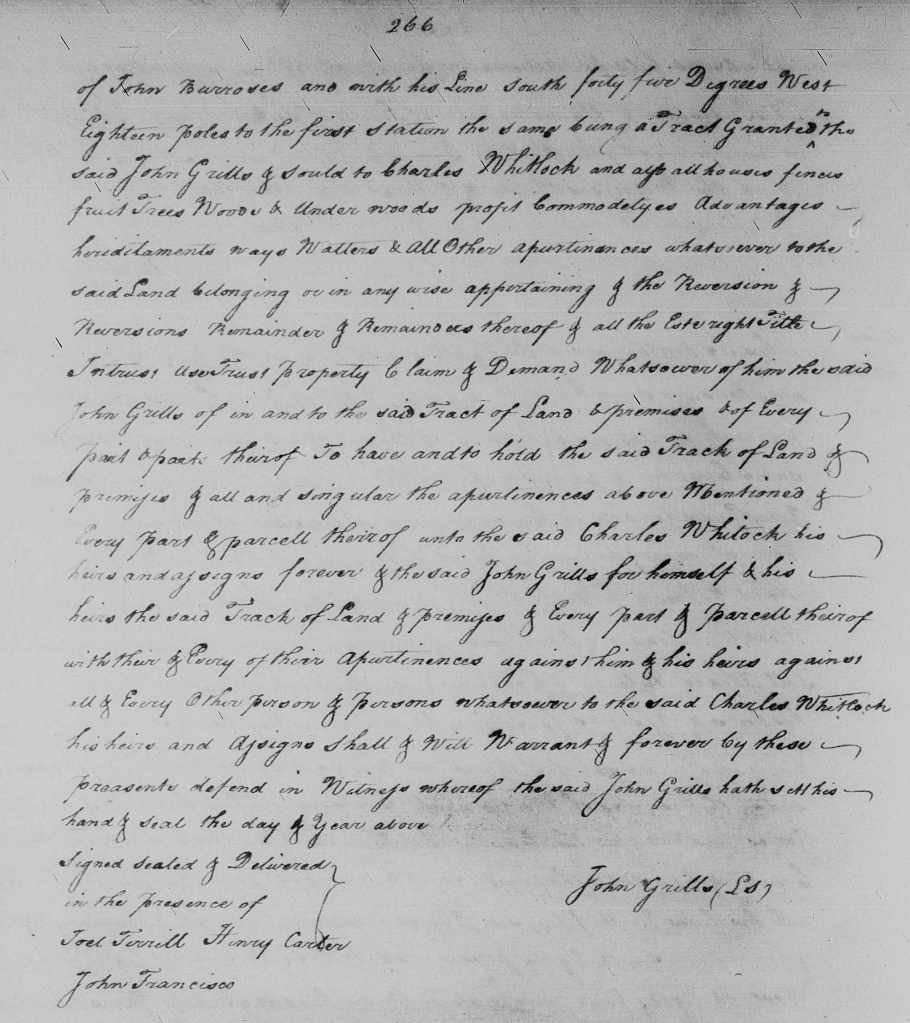 266
of John Burroses and with his Line south forty five Degrees West
Eighteen poles to the first station the same being a Tract Granted to the
said John Grills & sould to Charles Whitlock and also all houses fences
fruit Trees Woods & Under woods profit Commodetyes Advantages
heriditaments ways Watters & All Other apurtinances whatsoever to the
said Land belonging or in any wise appertaining & the Reversion &
Reversions Remainder & Remainders thereof & all the Este right Title
Intrust Use Trust property Claim & Demand Whatsoever of him the said
John Grills of in and to the said Tract of Land & premises & of Every
part & part theirof To have and to hold the said Track of Land &
premises & all and singular the apurtinences above Mentioned &
Every part & parcell theirof unto the said Charles Whitock his
heirs and assigns forever & the said John Grills for himself & his
heirs the said Track of Land & premises & Every part & parcell theirof
with their & Every of their Apurtinences against him & his heirs against
all & Every Other person & persons whatsoever to the said Charles Whitlock
his heirs and Assigns shall & Will Warrant & forever by these
praasents defend in Witness whereof the said John Grills hath sett his
hand & seal the day & Year above
Signed sealed & Delivered
in the presence of
John Grills (LS)
Joel Terrill Henry Carter
John Francisco